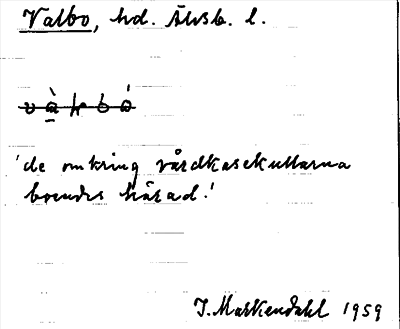 Valbo, hd. Älvsb. l.
'de omkring vårdkasekullarna
boendes härad.'
J. Markendahl 1959